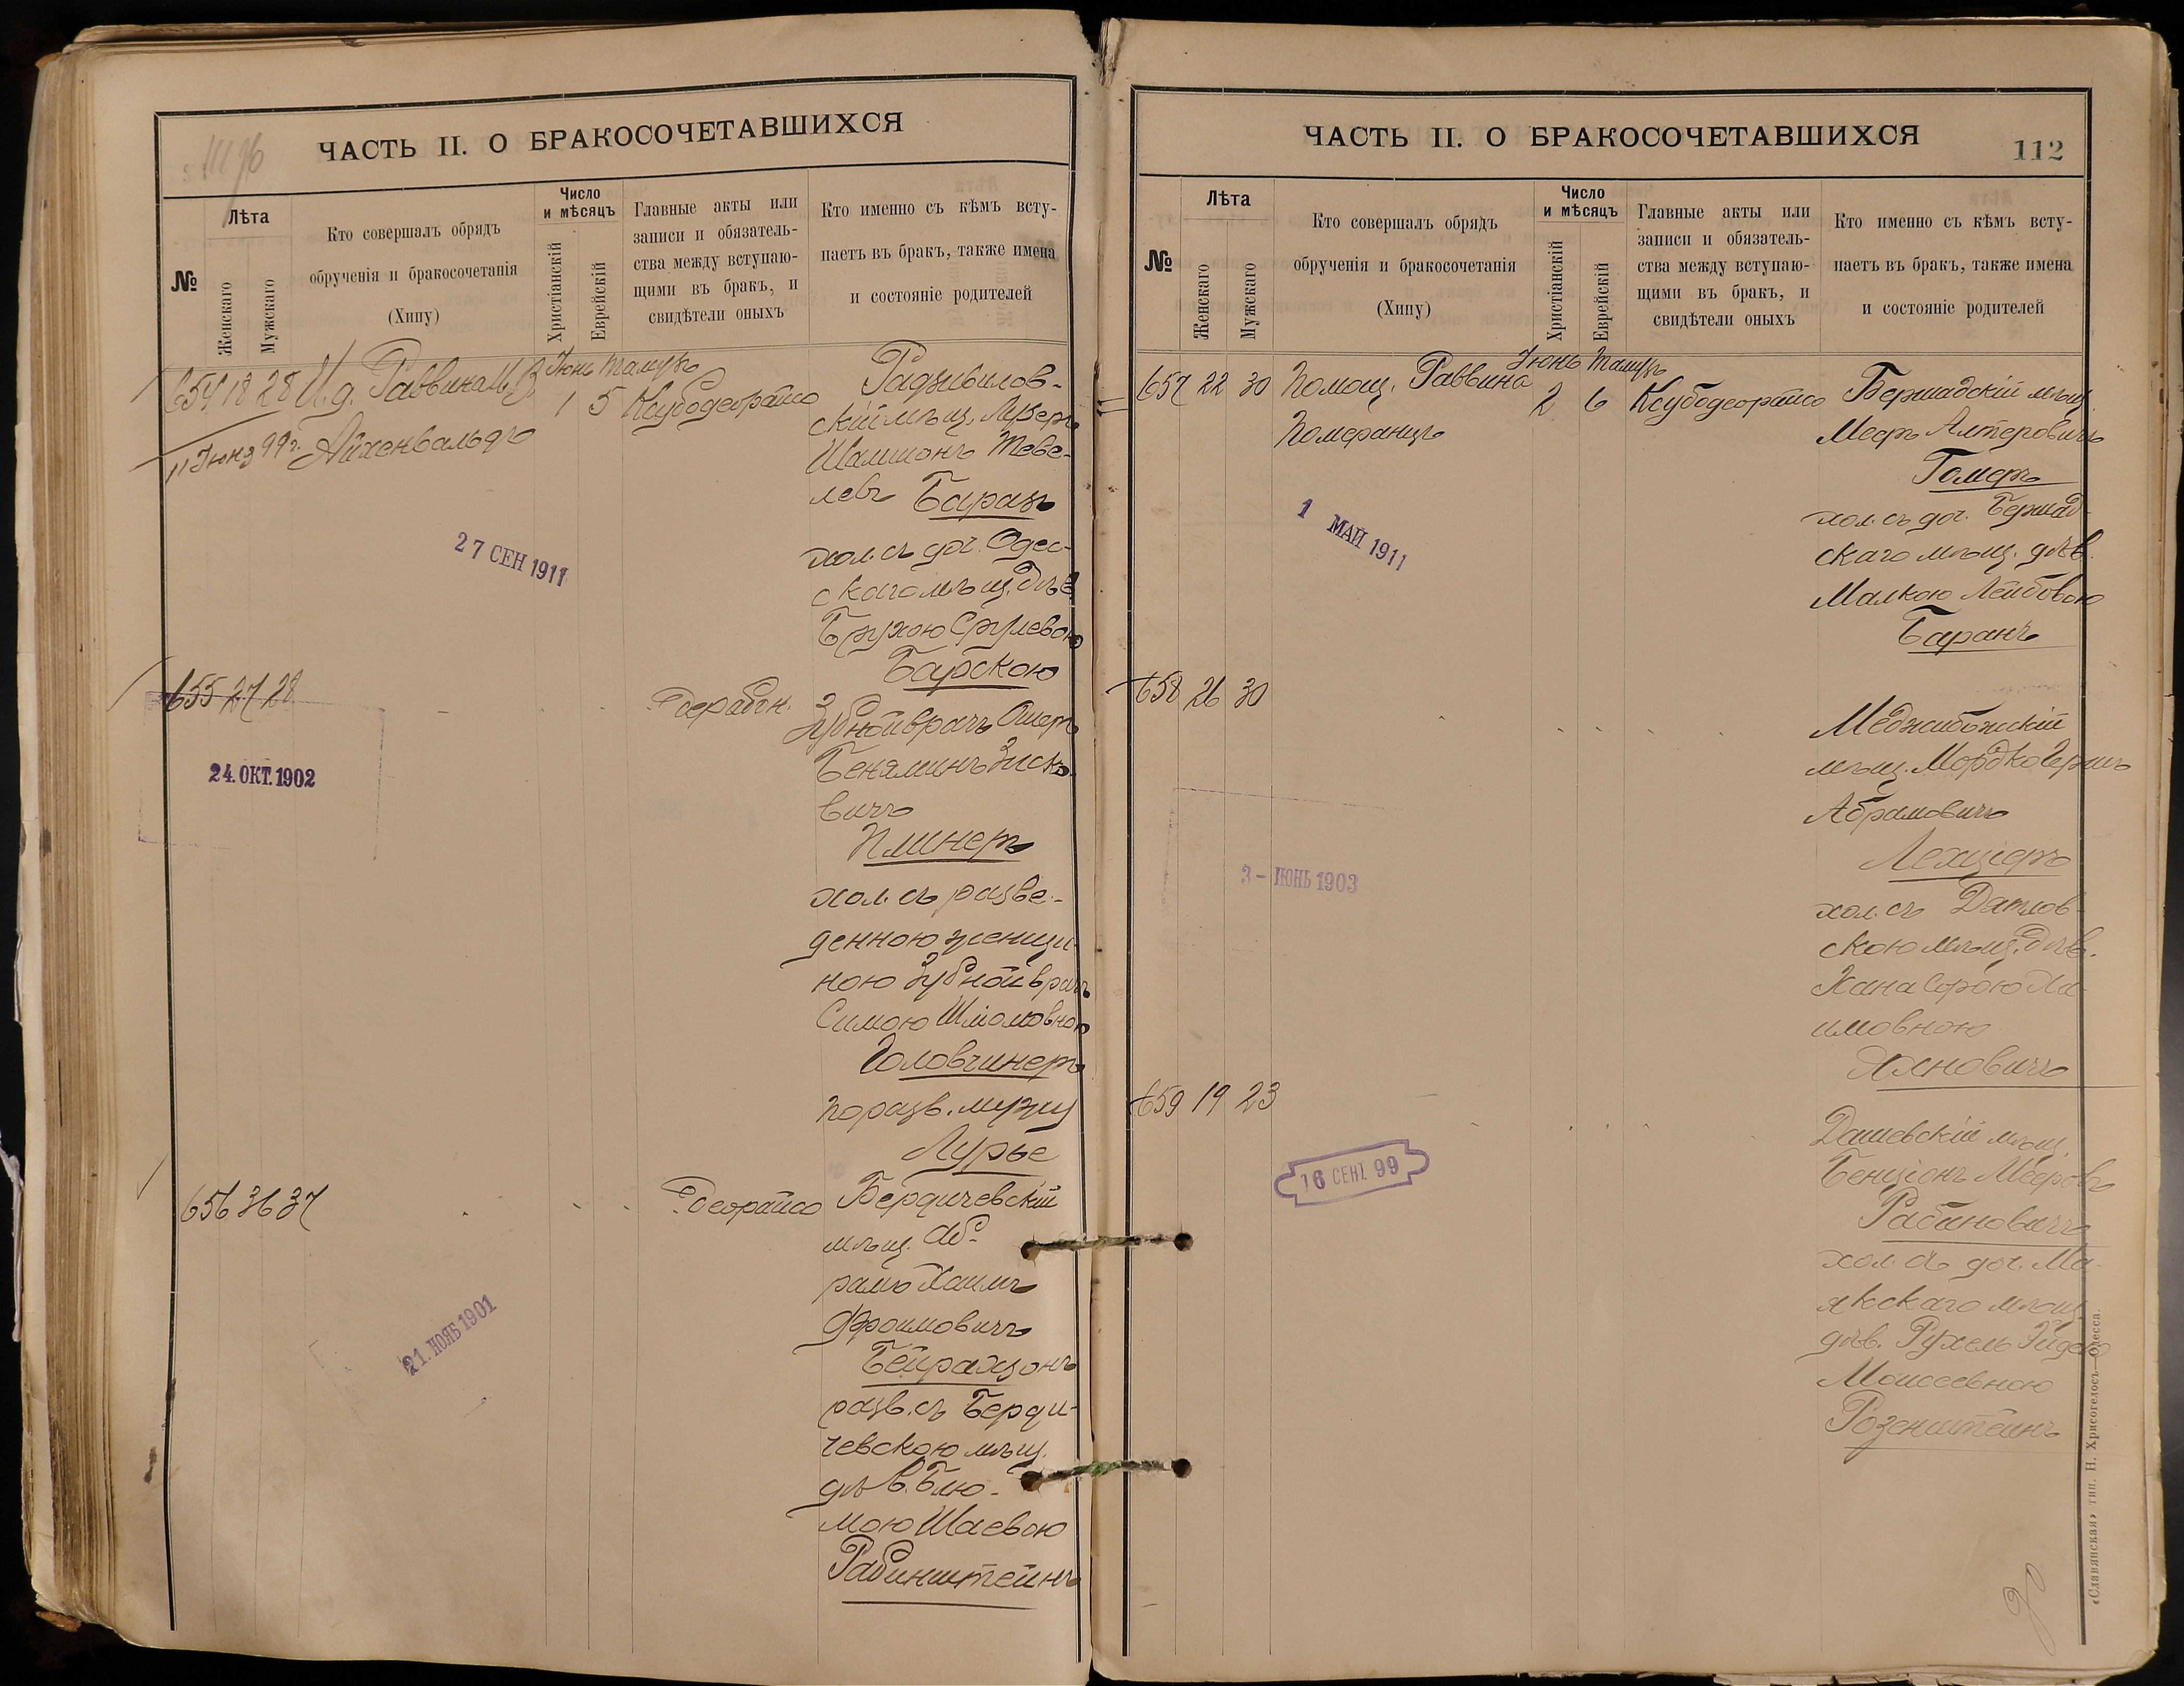 ЧАСТЬ II. О БРАКОСОЧЕТАВШИХСЯ
№
Лѣта
Женскаго
Мужскаго
Кто совершалъ обрядъ
обрученія и бракосочетанія
(Хипу)
Число
и мѣсяцъ
Христіанскій
Еврейскій
Главные акты или
записи и обязатель-
ства между вступаю-
щими въ бракъ, и
свидѣтели оныхъ
Кто именно съ кѣмъ всту-
паетъ въ бракъ, также имена
и состояніе родителей
654 18 28 И.д. Раввина
Айхенвальдъ
Іюнь Тамузъ
1 5 Ксубодеорайсо
11 Іюня 99 г.
Радзивилов-
скій мѣщ. Лузеръ
Шамшонъ Теве-
левъ Баразъ
хол. съ доч. Одес-
скаго мѣщ. дѣв.
Брухою Срулевою
Барскою
27 СЕН 1911
655 27 28
Дерабон.
24. ОКТ. 1902
Зубной врачъ Ошеръ
Беняминъ Зиско-
вичъ
Плинеръ
хол. съ разве-
денною женщи-
ною Зубной врачъ
Симою Шліомовною
Головчинеръ
по разв. мужу
Лурье
656 36 37
Деорайсо
21. НОЯБ 1901
Бердичевскій
мѣщ. Аб-
рамъ Хаимъ
Фроимовичъ
Бейрахзонъ
разв. съ Берди-
чевскою мѣщ.
дѣв. Блю-
мою Шаевою
Рабинштейнъ
ЧАСТЬ II. О БРАКОСОЧЕТАВШИХСЯ
112
№
Лѣта
Женскаго
Мужскаго
Кто совершалъ обрядъ
обрученія и бракосочетанія
(Хипу)
Число
и мѣсяцъ
Христіанскій
Еврейскій
Главные акты или
записи и обязатель-
ства между вступаю-
щими въ бракъ, и
свидѣтели оныхъ
Кто именно съ кѣмъ всту-
паетъ въ бракъ, также имена
и состояніе родителей
657 22 30 Помощ. Раввина
Померанцъ
Іюнь Тамузъ
2 6 Ксубодеорайсо
1 МАЙ 1911
Бершадскій мѣщ.
Мееръ Алтеровичъ
Гомеръ
хол. съ доч. Бершад-
скаго мѣщ. дѣв.
Малкою Лейбовою
Баранъ
658 26 30
3 - ІЮНЬ 1903
Меджибожскій
мѣщ. Мордко Гершъ
Абрамовичъ
Лехціеръ
хол. съ Датлов-
скою мѣщ. дѣв.
Хана Сурою Ха-
имовною
Яхновичъ
659 19 23
16 СЕНТ. 99
Дашевскій мѣщ.
Бенціонъ Мееровъ
Рабиновичъ
хол. съ доч. Ма-
якскаго мѣщ.
дѣв. Рухель Эйдею
Моисеевною
Розенштейнъ
«Славянская» тип. Н. Хрисогелосъ—Одесса.